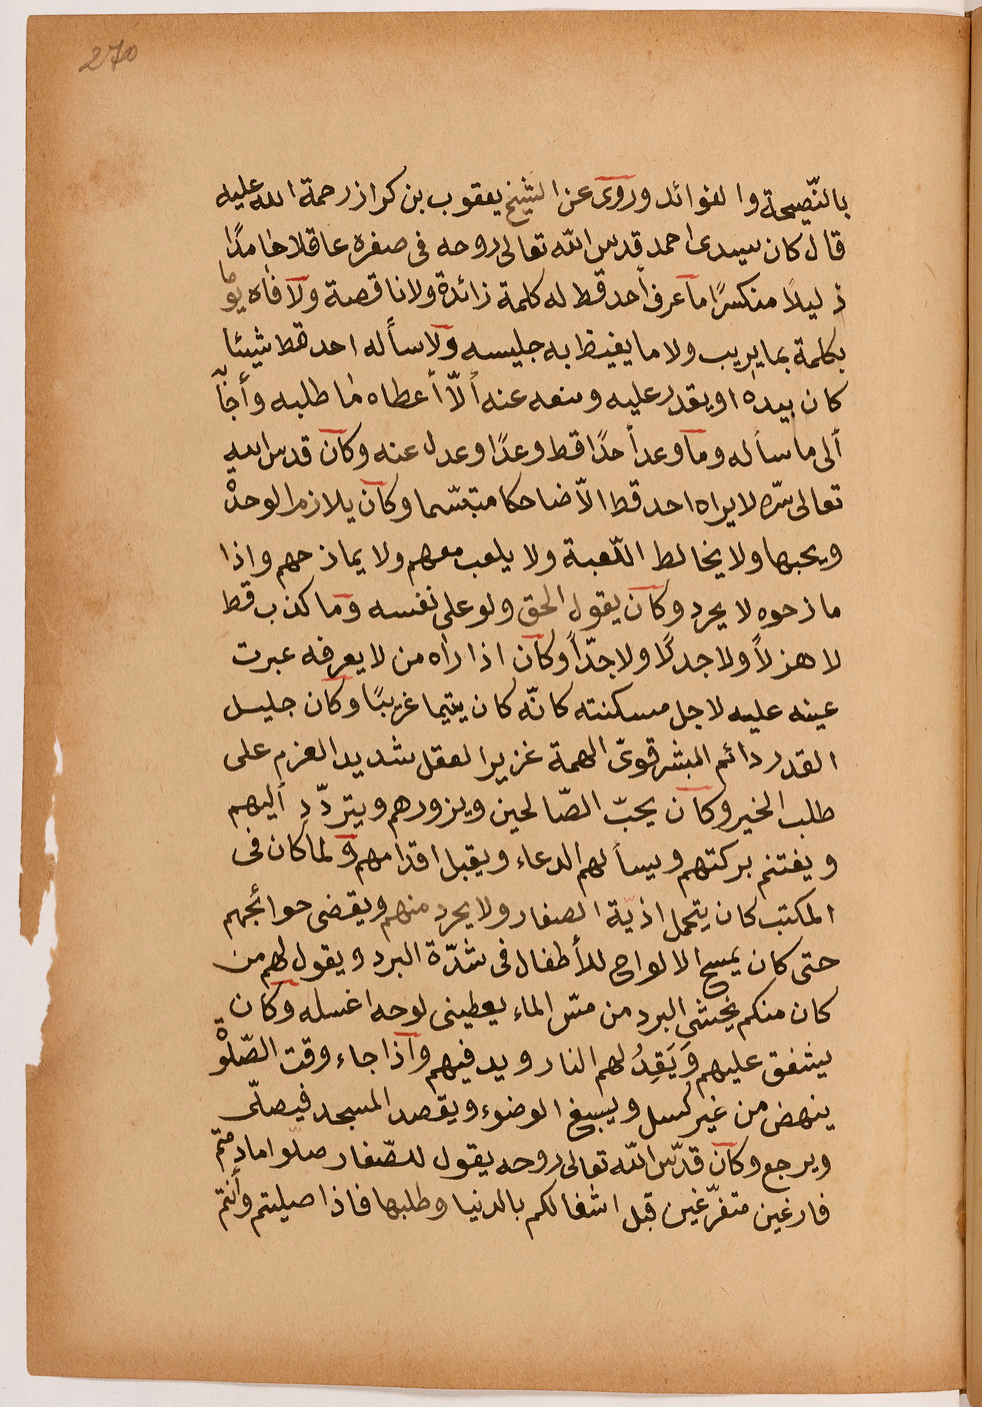 270
بالنّصيحة والفوائد وروى عن الشيخ يعقوب بن كراز رحمة الله عليه
قال كان سيدى احمد قدس الله تعالى روحه فى صغره عاقلا خامدًا
ذليلًا منكسرًا ما عرف أحد قط له كلمة زائدة ولا ناقصة ولا فاه يوما
بكلمة بما يريب ولا ما يغيظ به جليسه ولا سأله احد قط شيئا
كان بيده او يقدر عليه ومنعه عنه ألّا أعطاه ما طلبه وأجاب
ألى ما سأله وما وعد أحدًا قط وعدًا وعدل عنه وكان قدس الله
تعالى سرّه لا يراه احد قط الاّ ضاحكا متبسّما وكان يلازم الوحدة
ويحبها ولا يخالط اللّعبة ولا يلعب معهم ولا يمازحهم واذا
مازحوه لا يحرد وكان يقول الحق ولو على نفسه وما كذب قط
لا هزلاً ولا جدلًا ولا جدّاً وكان اذا راه من لا يعرفه عبرت
عينه عليه لاجل مسكنته كانّه كان يتيما غريبًا وكان جليل
القدر دائم البشر قوىّ الهمة غزير العقل شديد العزم على
طلب الخير وكان يحبّ الصّالحين ويزورهم ويتردّد أليهم
ويغتنم بركتهم ويسألهم الدعاء ويقبل اقدامهم ولما كان فى
المكتب كان يتحمل اذيّة الصغار ولا يحرد منهم ويقضى حوائجهم
حتى كان يمسح الالواح للأطفال فى شدّة البرد ويقول لهم من
كان منكم يخشى البرد من مسّ الماء يعطينى لوحه اغسله وكان
يشفق عليهم وَيَقِدُ لهم النار ويدفيهم وآذا جاء وقت الصّلوة
ينهض من غير كسل ويسبغ الوضوء ويقصد المسجد فيصلّى
ويرجع وكان قدّس الله تعالى روحه يقول للصّغار صلّوا مادمتم
فارغين متفرّغين قبل اشغالكم بالدنيا وطلبها فاذا صليتم وأنتم